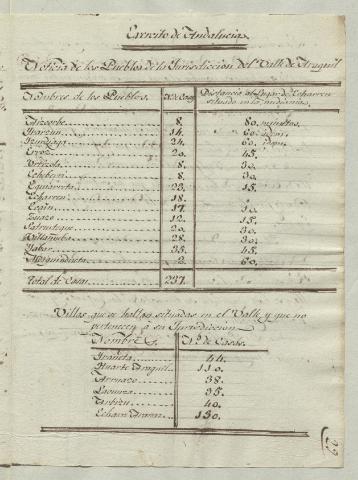 Exercito de Andalucia
Noticia de los Pueblos de la Jurisdiccion del Valle de Araquil
Nombres de los Pueblos. Distancia al Lugar de Echarren
situado en la mediania.
Aizcorbe 8. 80. minutos.
14. 60. idem.
24. 60. idem.
Erroz 20. 45.
Urrizola 8. 30.
Echeberri 8. 30.
Eguiarreta 23. 15.
Echarren 18.
Ecain 17. 10.
Zuazo 12. 15.
Satrustegui 20. 30.
Villanueba 28. 30.
Yabar 35. 45.
2. 60.
Total de Casas 237.
Villas que se hallan situadas en el Valle y que no
pertenecen a su Jurisdiccion
Nombres. N.º de Casas.
Irañeta 44.
Huarte Araquil 110.
Arruazo 38.
Lacunza 95.
Arbizu 40.
Echarri Aranaz 130.